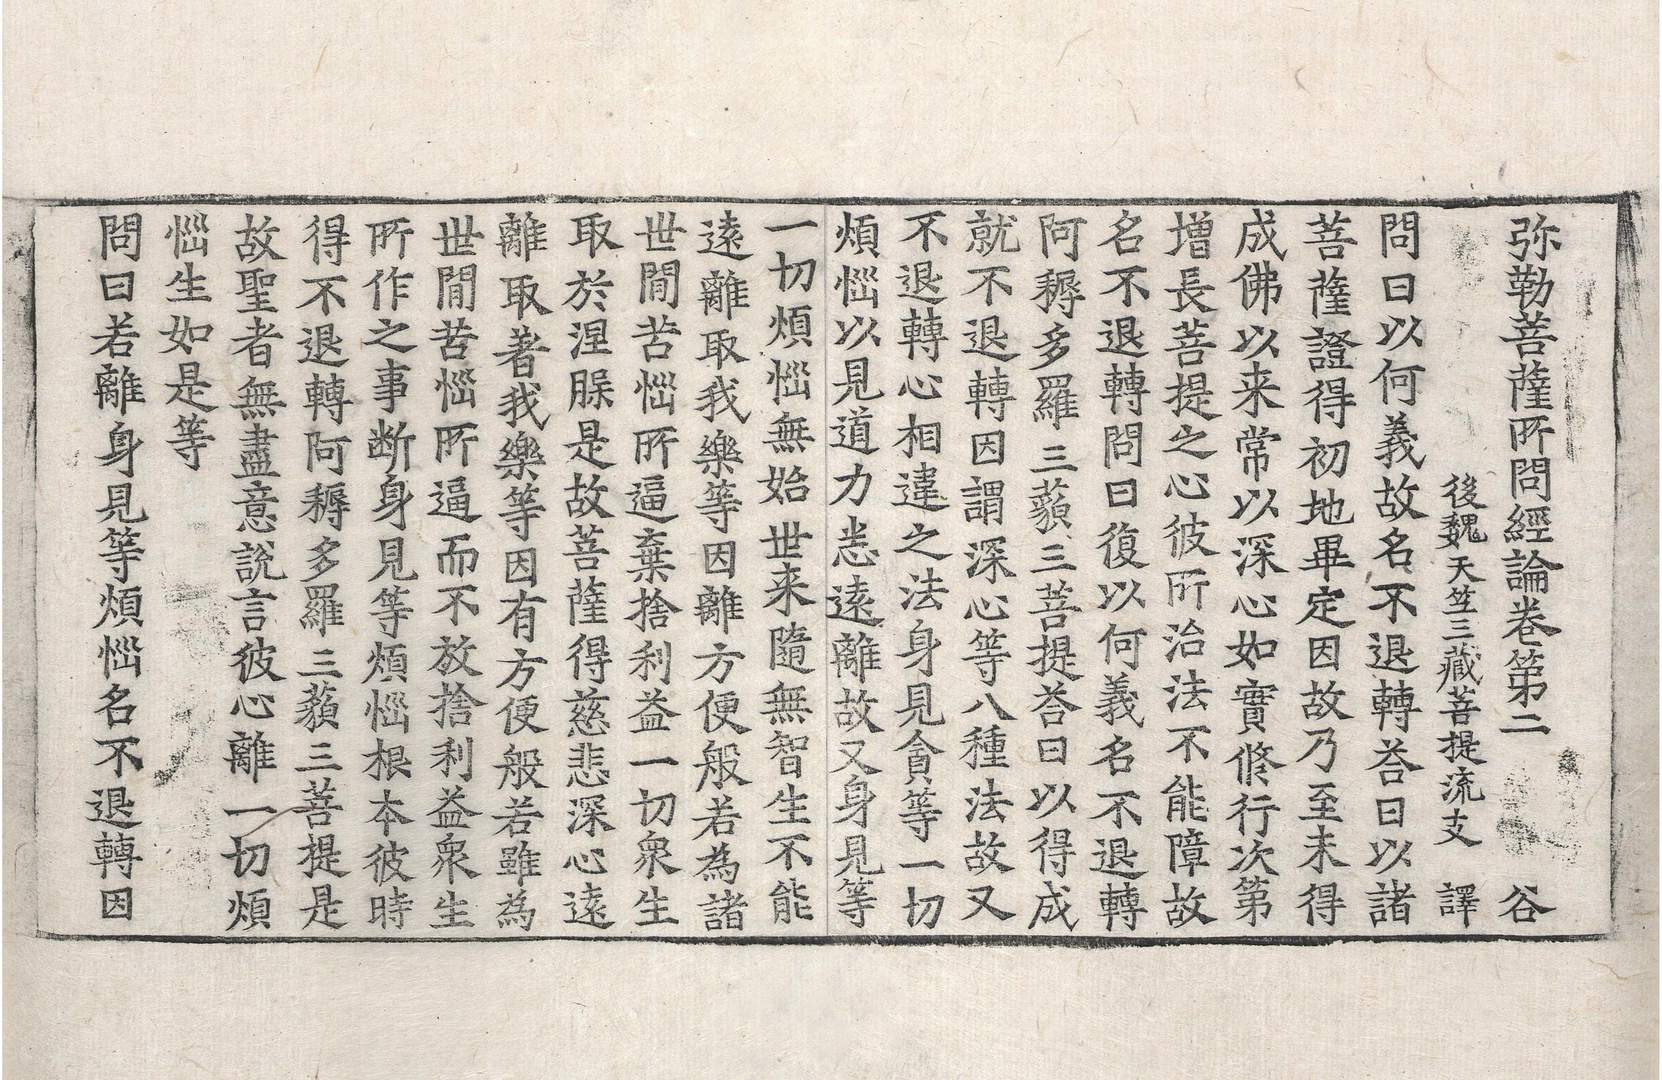 弥勒菩薩所問經論卷第二　谷
後魏天竺三藏菩提流支　譯
問曰以何義故名不退轉荅曰以諸
菩薩證得初地畢定因故乃至未得
成佛以来常以深心如實修行次第
增長菩提之心彼所治法不能障故
名不退轉問曰復以何義名不退轉
阿耨多羅三藐三菩提荅曰以得成
就不退轉因謂深心等八種法故又
不退轉心相違之法身見貪等一切
煩惱以見道力悉遠離故又身見等
一切煩惱無始世来隨無智生不能
遠離取我樂等因離方便般若為諸
世間苦惱所逼棄捨利益一切衆生
取於涅槃是故菩薩得慈悲深心遠
離取著我樂等因有方便般若雖為
世間苦惱所逼而不放捨利益衆生
所作之事断身見等煩惱根本彼時
得不退轉阿耨多羅三藐三菩提是
故聖者無盡意說言彼心離一切煩
惱生如是等
問曰若離身見等煩惱名不退轉因